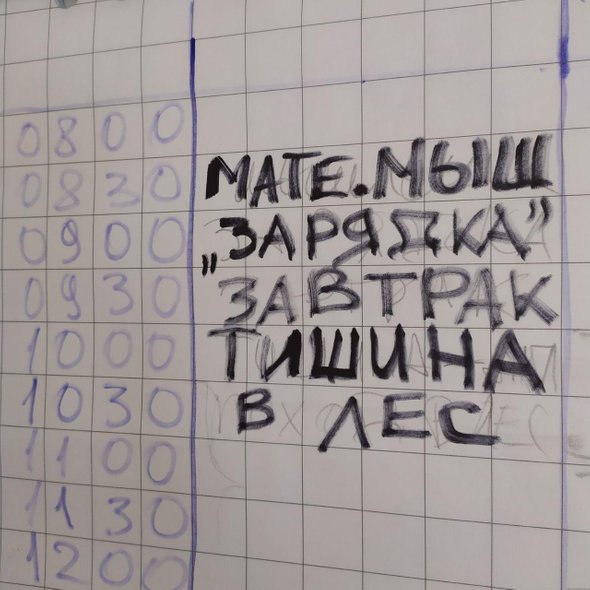 0800
0830 МАТЕ.МЫШ
0900 „ЗАРЯДКА”
0930 ЗАВТРАК
1000 ТИШИНА
1030 В ЛЕС
1100
1130
1200